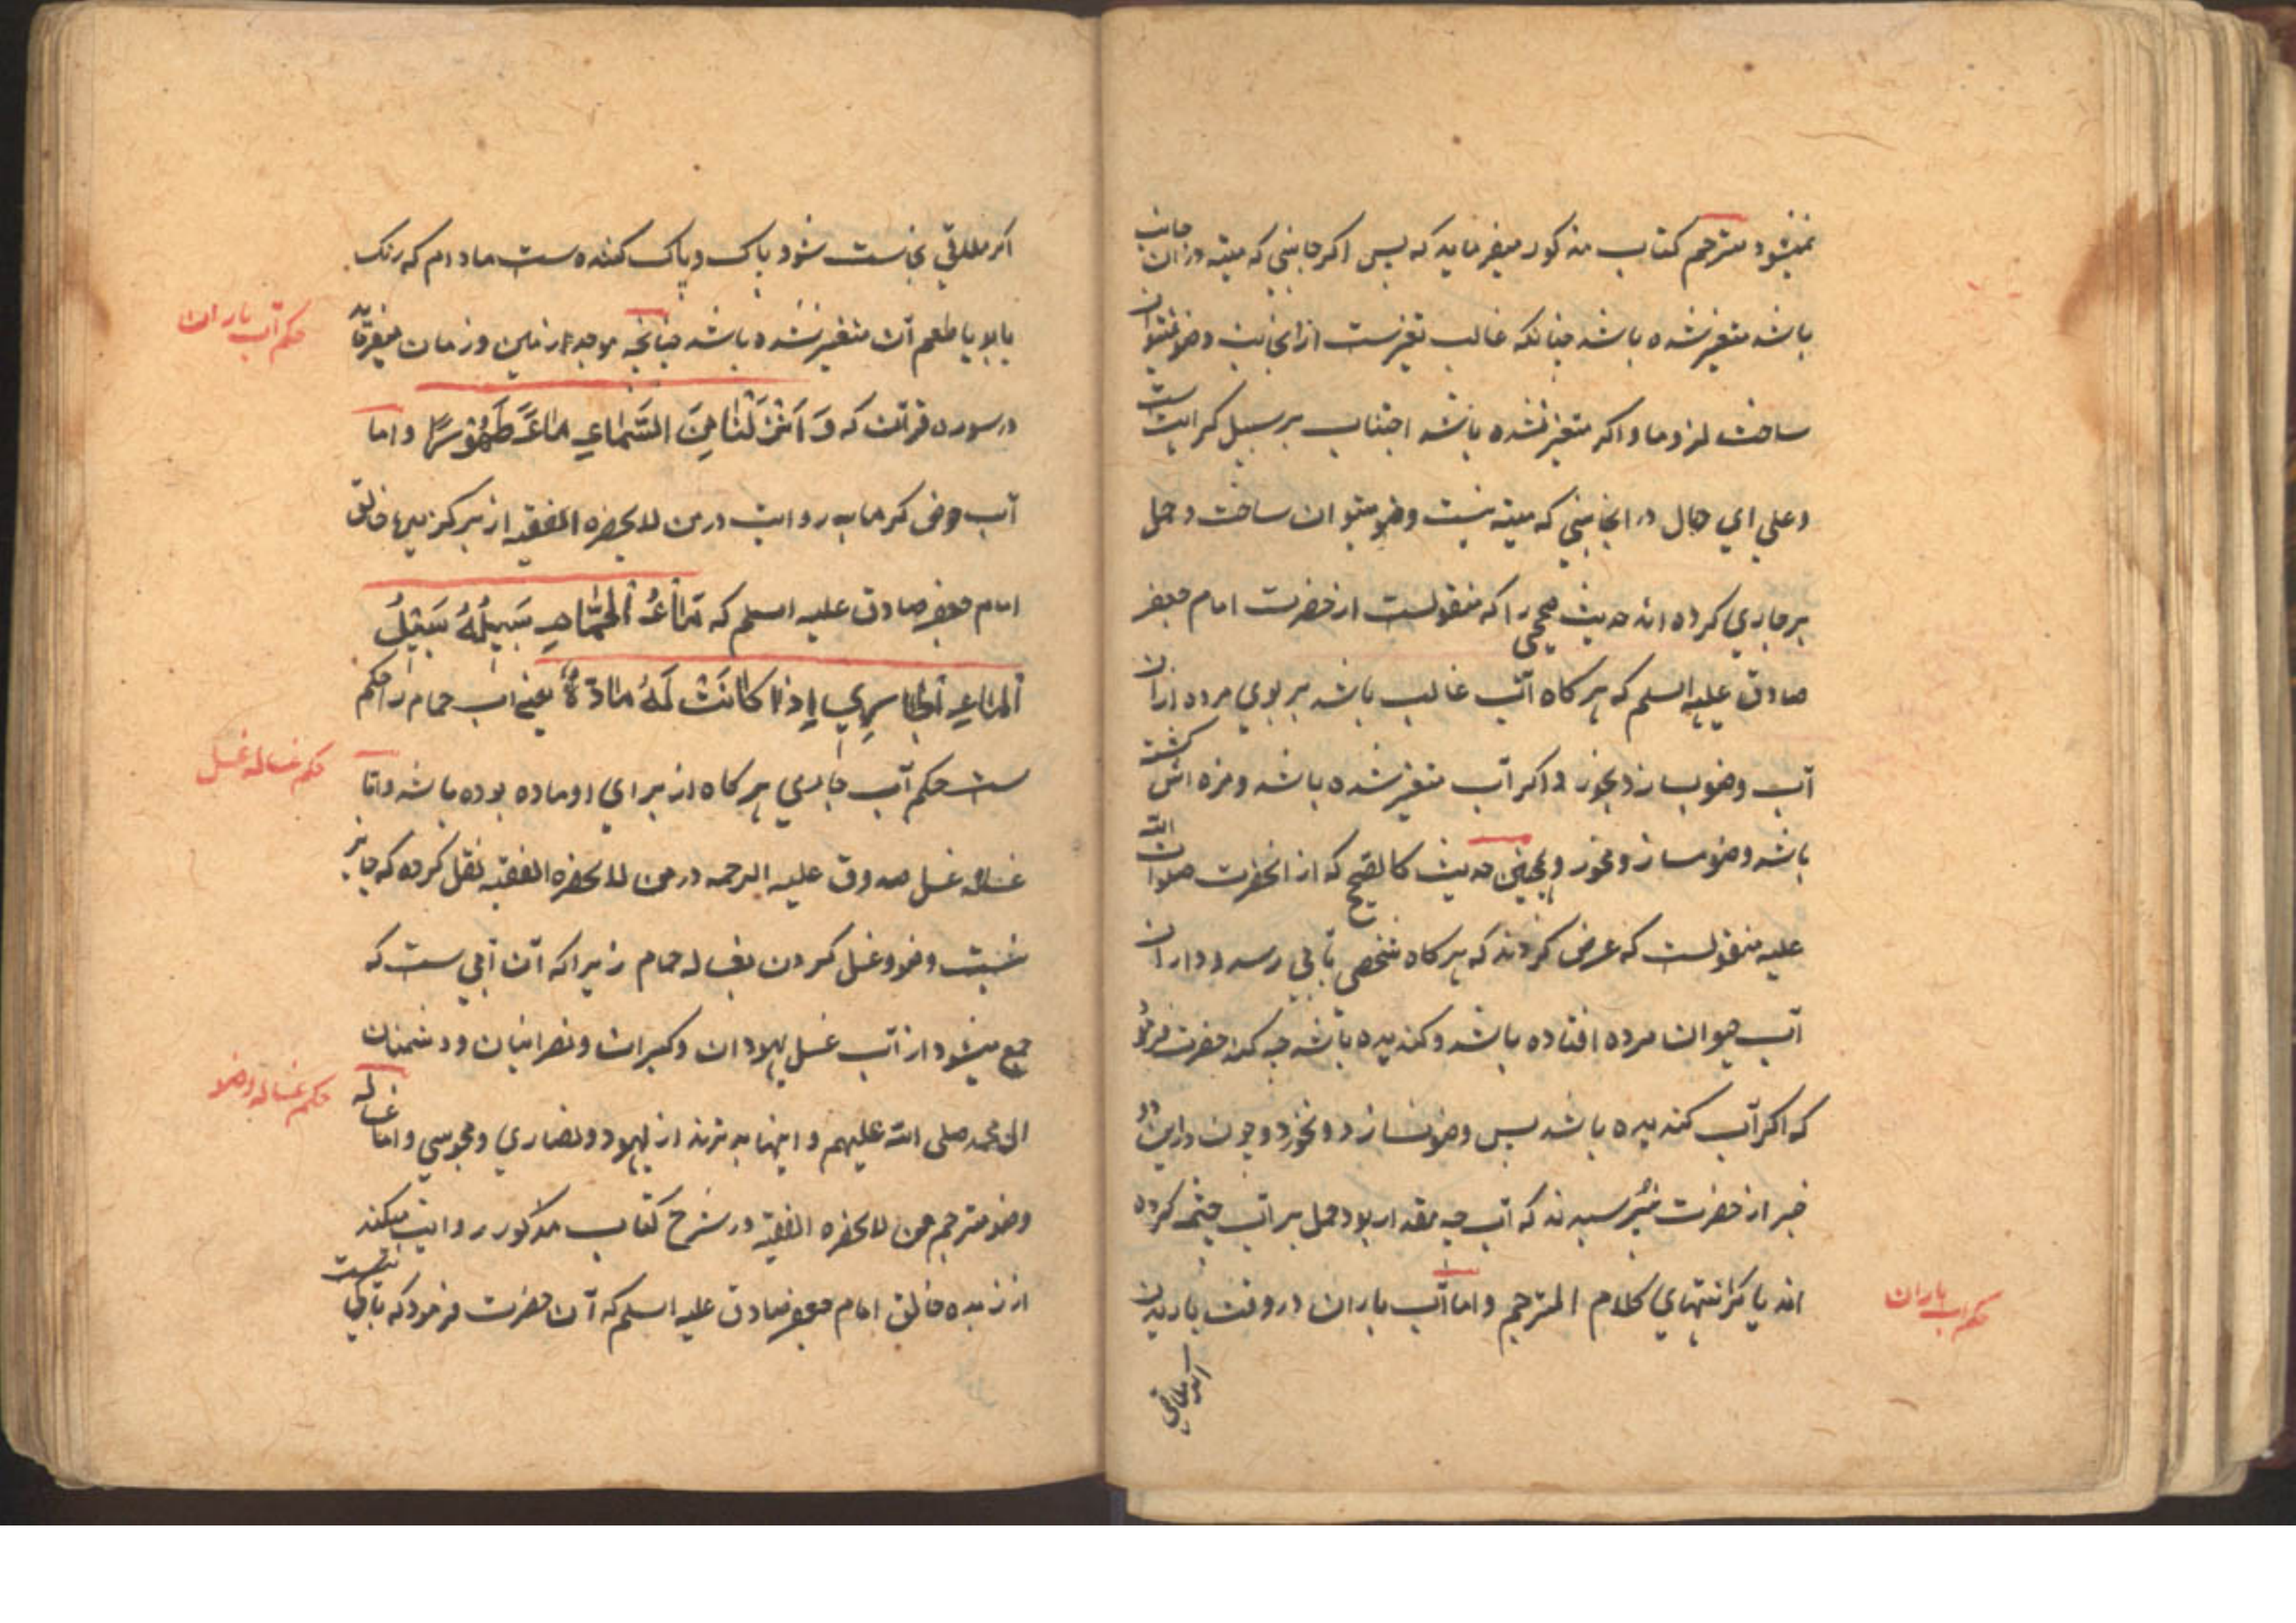 نمیشود مترجم کتاب مذکور میفرماید که پس اکر جانبی که میته در ان جانب
باشد متغیر شده باشد چنانکه غالب تغیرست از انجانب وضو نمیتوان
ساخت لزوما و اکر متغیر نشده باشد اجتناب بر سبیل کراهیت ست
و علی ای حال در انجانبی که میته نیست وضو میتوان ساخت و حمل
بر جاری کرده اند حدیث صحیحی را که منقولست از حضرت امام جعفر
صادق علیه السلم که هرکاه آب غالب باشد بر بوی مرده ازان
آب وضو بساز و بخور و اکر آب متغیر شده باشد و مزه اش کشته
باشد وضو مساز و مخور و همچنین حدیث کالصحیح که از انحضرت صلوات الله
علیه منقولست که عرض کردند که هرکاه شخصی بآبی رسد و در ان
آب حیوان مرده افتاده باشد و کندیده باشد چه کند حضرت فرمود
که اکر آب کندیده باشد پس وضو نسازد و نخورد و چون در این دو
خبر از حضرت نپرسیدند که آب چه مقدار بود حمل بر آب چشمه کرده
اند یا کر انتهای کلام المترجم و اما آب باران در وقت باریدن
حکم اب باران
اکر ملاقی
اکر ملاقی نجاست شود پاک و پاک کننده ست مادام که رنک
یا بو یا طعم آن متغیر نشده باشد چنانچه موجد زمین و زمان میفرماید
حکم آب باران
در سوره فرقان که وَ اَنْزَلْنَا مِنَ السَّمَاءِ مَاءً طَهُوْرًا و اما
آب حوض کرمابه روایت در من لا یحضره الفقیه از بر کزیده خالق
امام جعفر صادق علیه السلم که مَاءُ الْحَمَّامِ سَبِیلُهُ سَبِیْلُ
الْمَاءِ الْجَارِي اِذَا کَانَتْ لَهُ مَادَّةٌ یعنی اب حمام را حکم
ست حکم آب جاری هرکاه از برای او ماده بوده باشد و اما
حکم غساله غسل
غساله غسل صدوق علیه الرحمه در من لا یحضره الفقیه نقل کرده که جایز
نیست وضو و غسل کردن بغساله حمام زیرا که آن آبی ست که
جمع میشود از آب غسل یهودان و کبران و نصرانیان و دشمنان
ال محمد صلی الله علیهم و اینها بدترند از یهود و نصاری و مجوسی و اما غساله
حکم غساله وضو
وضو مترجم من لا یحضره الفقیه در شرح کتاب مذکور روایت میکند
از زبده خالق امام جعفر صادق علیه السلم که آن حضرت فرمود که باکی نیست